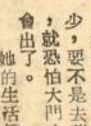 少，要不是去
，就恐怕大門
會出了。
她的生活